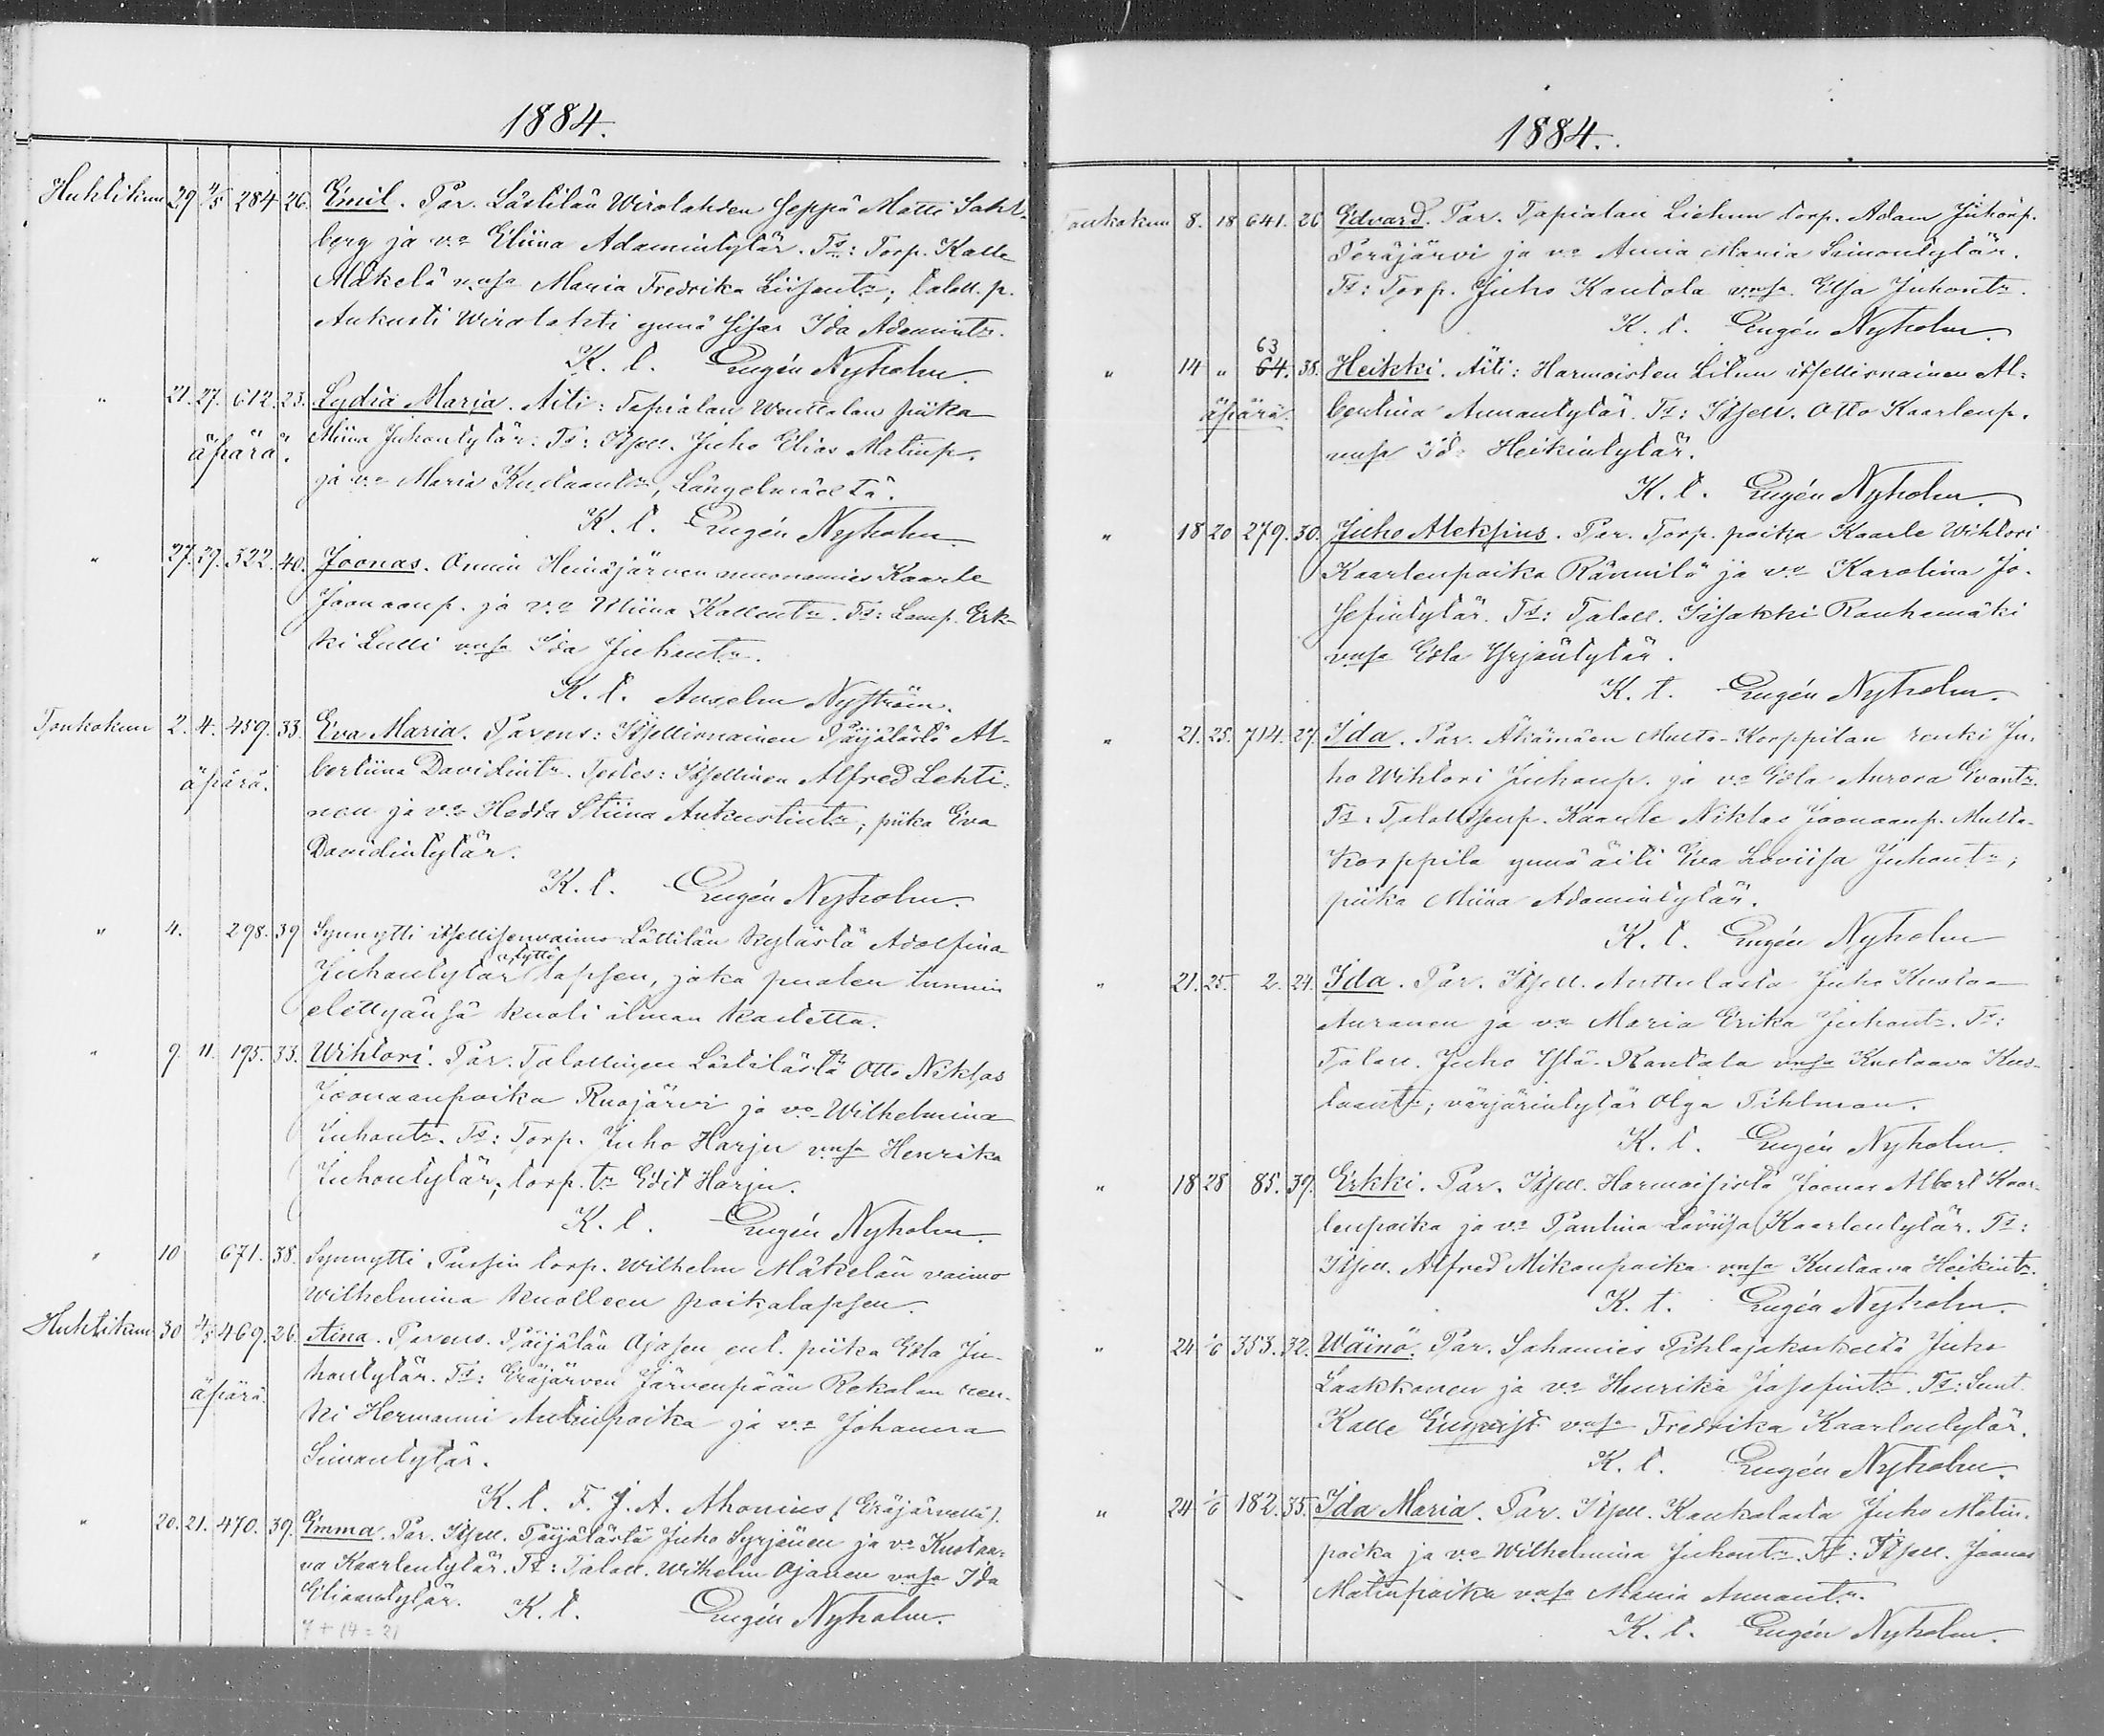 1884.
Huhtikuu 29 4/5 284 26. Emil. Par. Lästilän Wirolahden seppä Matti Sahl-
berg ja v:o Eliina Adamintytär. Ts: Torp. Kalle
Mäkelä vnsa Maria Fredrika Liisant:r; taloll. p.
Aukusti Wirolahti ynnä sisar Ida Adamint:r.
K. t. Eugén Nyholm.
" 21. 27. 612. 23. Lydia Maria. Äiti: Tapialan Wanttalan piika
äpärä. Miina Juhontytär. Ts: Itsell. Juho Elias Matinp.
ja v:o Maria Kustaant:r, Längelmäeltä.
K. t. Eugén Nyholm.
" 27. 29. 522. 40. Joonas. Onnin Heinäjärven muonamies Kaarle
Joonaanp. ja v:o Miina Kallent:r. Ts: Lamp. Erk-
ki Lulli vnsa Ida Juhont:r.
K. t. Anselm Nyström.
Toukokuu 2. 4. 459. 33. Eva Maria. Parens: Itsellisnainen Päijälästä Al-
äpärä. bertiina Davidint:r. Testes: Itsellinen Alfred Lehti-
nen ja v:o Hedda Stiina Aukustint:r; piika Eva
Davidintytär.
K. t. Eugén Nyholm.
" 4. 298. 39 Synnytti itsellisenvaimo Lättilän kylästä Adolfina
Juhontytär tyttö lapsen, joka puolen tunnin
elettyänsä kuoli ilman kastetta.
" 9. 11. 195. 33. Wihtori. Par. Talollinen Lästilästä Otto Niklas
Joonaanpoika Ruojärvi ja v:o Wilhelmina
Juhont:r. Ts: Torp. Juho Harju vnsa Henrika
Juhontytär; torp. t:r Edit Harju.
K. t. Eugén Nyholm.
" 10 671. 38. Synnytti Pussin torp. Wilhelm Mäkelän vaimo
Wilhelmina kuolleen poikalapsen.
Huhtikuu 30 4/5 469. 26. Aina. Parens. Päijälän Ojasen ent. piika Edla Ju-
äpärä. hontytär. Ts: Eräjärven Järvenpään Rekolan ren-
ki Hermanni Antinpoika ja v:o Johanna
Simontytär.
K. t. F. J. A. Ahonius (Eräjärvellä).
" 20. 21. 470. 39. Emma. Par. Itsell. Päijälästä Juho Syrjänen ja v:o Kustaa-
va Kaarlentytär. Ts: Taloll. Wilhelm Ojanen vnsa Ida
Eliaantytär. K. t. Eugén Nyholm.
7 + 14 = 21
1884.
Toukokuu 8. 18 641. 26 Edvard. Par. Tapialan Liehun torp. Adam Juhonp.
Peräjärvi ja v:o Anna Maria Simontytär.
Ts: Torp. Juho Kantola vnsa Elsa Juhont:r.
K. t. Eugén Nyholm.
63
" 14 " 64. 38. Heikki. Äiti: Harmoisten Lilun itsellisnainen Al-
äpärä. bertina Annantytär. Ts: Itsell. Otto Kaarlenp.
vnsa Ida Heikintytär.
K. t. Eugén Nyholm.
" 18 20 279. 30. Juho Aleksius. Par. Torp. poika Kaarle Wihtori
Kaarlenpoika Rännilä ja v:o Karolina Jo-
sefintytär. Ts: Taloll. Iisakki Rauhamäki
vnsa Edla Yrjäntytär.
K. t. Eugén Nyholm.
" 21. 25. 714. 27. Ida. Par. Äkämäen Multa-Korppilan renki Ju-
ho Wihtori Juhonp. ja v:o Edla Aurora Evant:r.
Ts. Talollisenp. Kaarle Niklas Joonaanp. Multa-
Korppila ynnä äiti Eva Loviisa Juhont:r;
piika Miina Adamintytär.
K. t. Eugén Nyholm
" 21. 25. 2. 24. Ida. Par. Itsell. Anttulasta Juho Kustaa
Auranen ja v:o Maria Erika Juhont:r. Ts:
Taloll. Juho Ylä-Rantala vnsa Kustaava Kus-
taant:r; värjärintytär Olga Pihlman.
K. t. Eugén Nyholm.
" 18 28 85. 39. Erkki. Par. Itsell. Harmoisista Joonas Albert Kaar-
lenpoika ja v:o Pauliina Loviisa Kaarlentytär. Ts:
Itsell. Alfred Mikonpoika vnsa Kustaava Heikint:r.
K. t. Eugén Nyholm.
" 24 1/6 353. 32. Wäinö. Par. Sahamies Pihlajakoskelta Juho
Laakkonen ja v:o Henrika Josefint:r. Ts: Sunt.
Kalle Enqvist vnsa Fredrika Kaarlentytär.
K. t. Eugén Nyholm.
" 24 1/6 182. 35. Ida Maria. Par. Itsell. Kaukolasta Juho Matin-
poika ja v:o Wilhelmina Juhont:r. Ts: Itsell. Joonas
Matinpoika vnsa Maria Annant:r.
K. t. Eugén Nyholm.